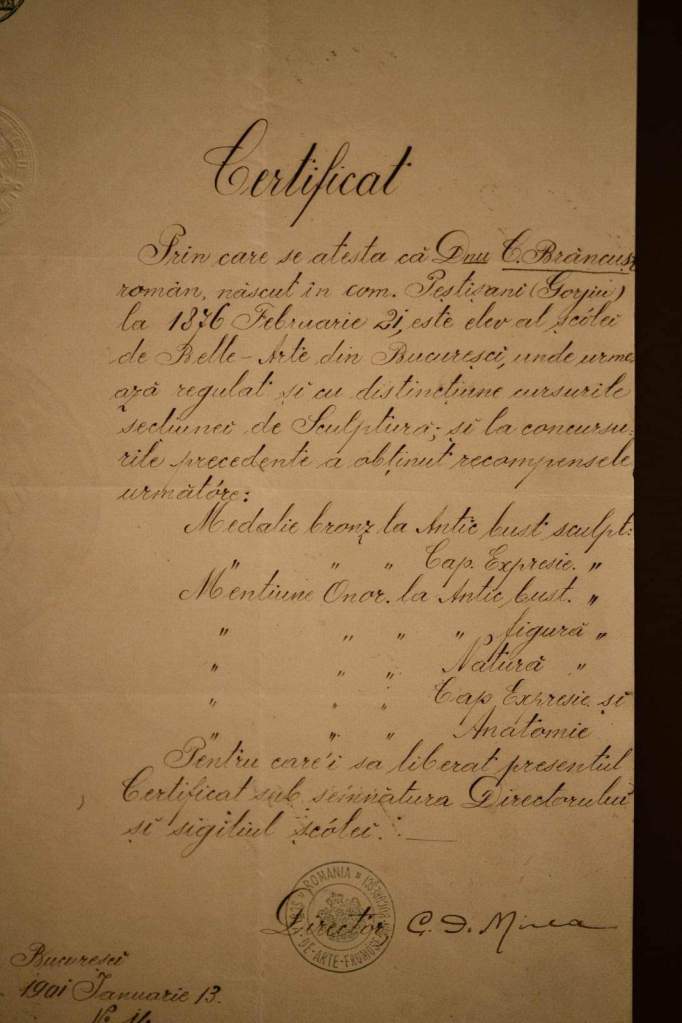 Certificat
Prin care se atesta că Dnu C. Brâncuși
român, născut în com. Peștișani (Gorjiu)
la 1876 Februarie 21, este elev al șcólei
de Belle-Arte din Bucuresci, unde urme-
ază regulat și cu distincțiune cursurile
secțiunei de Sculptură; și la concursu-
rile precedente a obținut recompensele
următóre:
Medalie bronz la Antic bust sculpt:
" " " Cap. Expresie. "
Mentiune Onor. la Antic bust. "
" " " " figură "
" " " Natură "
" " " Cap Expresie și
" " " Anatomie
Pentru care'i sa liberat presentul
Certificat sub semnătura Directorului
și sigiliul șcólei.
ROMANIA
DE-ARTE-FRUMOSE
Director C. D. Mirea
Bucuresci
1901 Ianuarie 13.